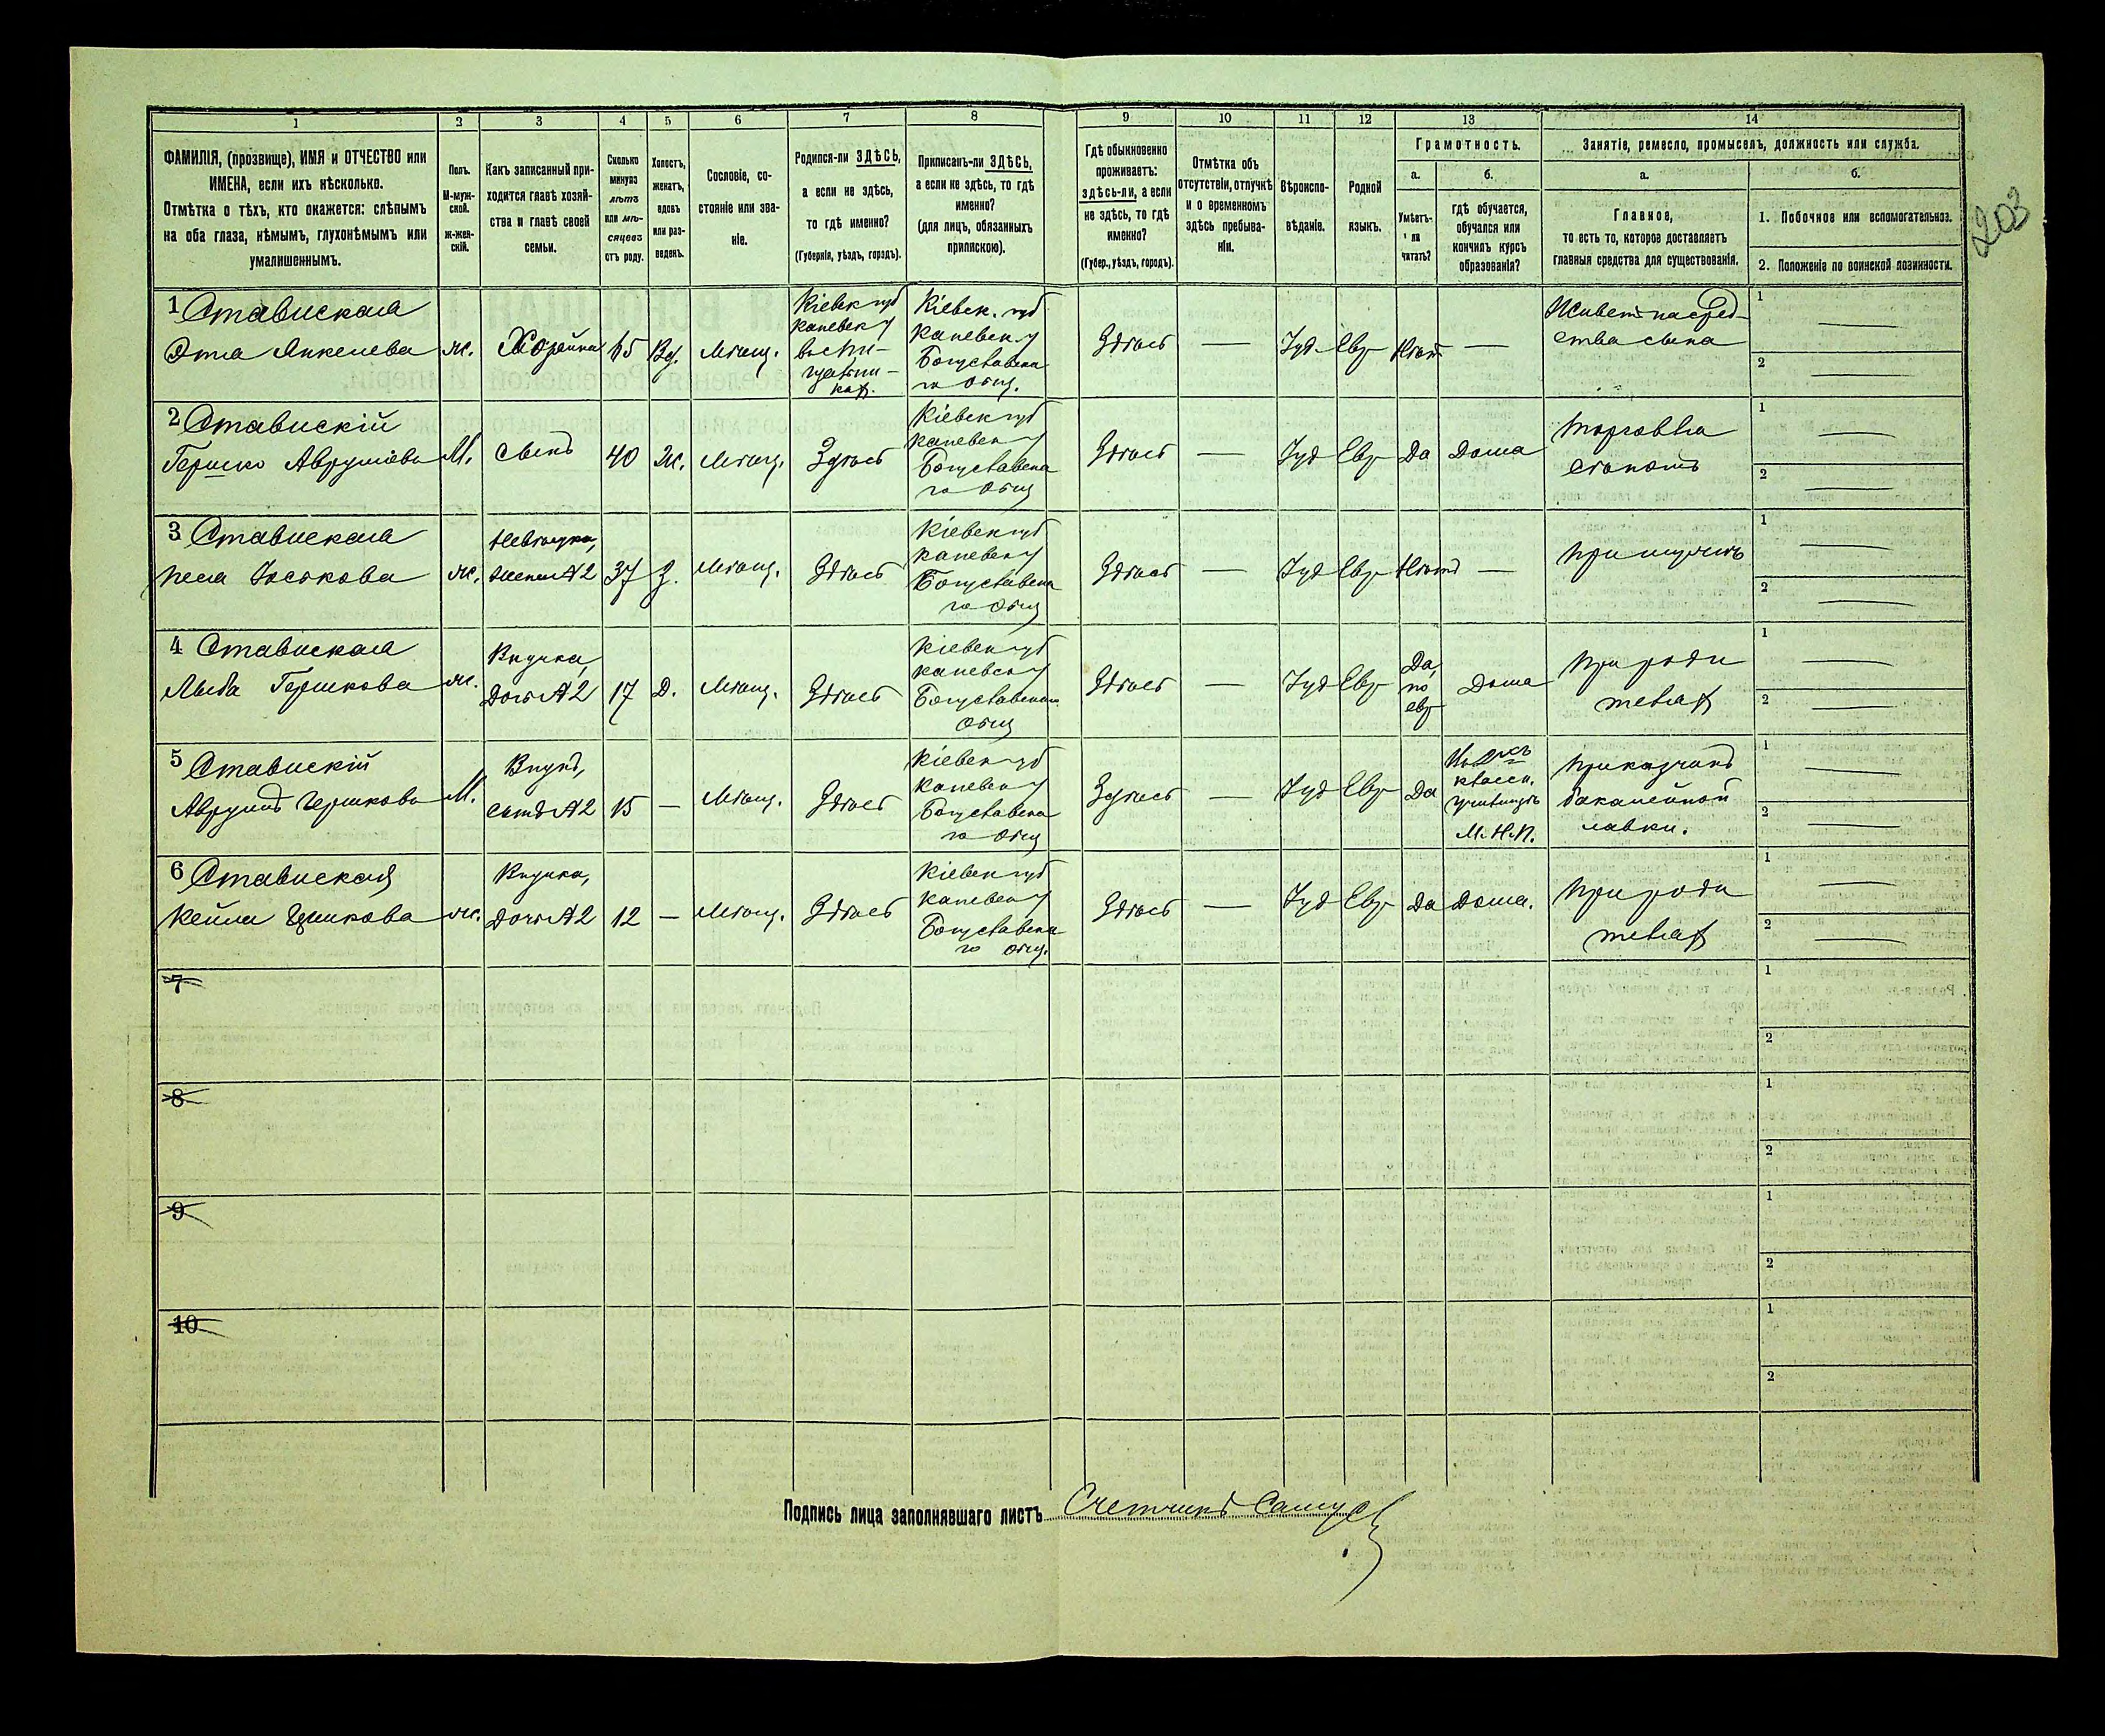 203
1
2
3
4
5
6
7
8
9
10
11
12
13
14
ФАМИЛІЯ, (прозвище), ИМЯ и ОТЧЕСТВО или
ИМЕНА, если ихъ нѣсколько.
Отмѣтка о тѣхъ, кто окажется: слѣпымъ
на оба глаза, нѣмымъ, глухонѣмымъ или
умалишеннымъ.
Полъ.
М-муж-
ской.
Ж-жен-
скій.
Какъ записанный при-
ходится главѣ хозяй-
ства и главѣ своей
семьи.
Сколько
минуло
лѣтъ
или мѣ-
сяцевъ
отъ роду.
Холостъ,
женатъ,
вдовъ
или раз-
веденъ.
Сословіе, со-
стояніе или зва-
ніе.
Родился-ли ЗДѢСЬ,
а если не здѣсь,
то гдѣ именно?
(Губернія, уѣздъ, городъ).
Приписанъ-ли ЗДѢСЬ,
а если не здѣсь, то гдѣ
именно?
(для лицъ, обязанныхъ
припискою).
Гдѣ обыкновенно
проживаетъ:
здѣсь-ли, а если
не здѣсь, то гдѣ
именно?
(Губер., уѣздъ, городъ).
Отмѣтка объ
отсутствіи, отлучкѣ
и о временномъ
здѣсь пребыва-
ніи.
Вѣроиспо-
вѣданіе.
Родной
языкъ.
Грамотность.
а.
Умѣетъ-
ли
читать?
б.
гдѣ обучается,
обучался или
кончилъ курсъ
образованія?
Занятіе, ремесло, промыселъ, должность или служба.
а.
Главное,
то есть то, которое доставляетъ
главныя средства для существованія.
б.
1. Побочное или вспомогательное.
2. Положеніе по воинской повинности.
1 Ставиская
Этла Янкелева
ж.
Хозяйка
65
Вд.
Мѣщ.
Кіевск губ
Каневск у
Кіевск. губ
Каневск у
Богуславска
го общ.
Здѣсь
—
Іуд
Евр
Нѣтъ
—
Живетъ на сред-
ства сына
1 —
2 —
2 Ставискій
Гершко Аврумова
М.
Сынъ
40
Ж.
Мѣщ.
Здѣсь
Кіевск губ
Каневск у
Богуславска
го общ
Здѣсь
—
Іуд
Евр
Да
Дома
Торговля
1 —
2 —
3 Ставиская
Песя Іоськова
ж.
Невѣстка,
Жена №2
37
З.
Мѣщ.
Здѣсь
Кіевск губ
Каневск у
Богуславска
го общ
Здѣсь
—
Іуд
Евр
Нѣтъ
—
При мужѣ
1 —
2 —
4 Ставиская
Лыба Гершкова
ж.
Внучка,
Дочь №2
17
Д.
Мѣщ.
Здѣсь
Кіевск губ
Каневск у
Богуславскаго
общ
Здѣсь
—
Іуд
Евр
Да,
по
евр
Дома
При роди
теляхъ
1 —
2 —
5 Ставискій
Аврумъ Гершкова
М.
Внукъ,
Сынъ №2
15
—
Мѣщ.
Здѣсь
Кіевск губ
Каневск у
Богуславска
го общ
Здѣсь
—
Іуд
Евр
Да
класси.
училищѣ
М.Н.П.
Приказчикъ
бакалейной
лавки.
1 —
2 —
6 Ставиская
Кейля Гершкова
ж.
Внучка,
Дочь №2
12
—
Мѣщ.
Здѣсь
Кіевск губ
Каневск у
Богуславска
го общ.
Здѣсь
—
Іуд
Евр
Да
Дома.
При роди
теляхъ
1 —
2 —
7
1
2
8
1
2
9
1
2
10
1
2
Подпись лица заполнявшаго листъ Счетчикъ